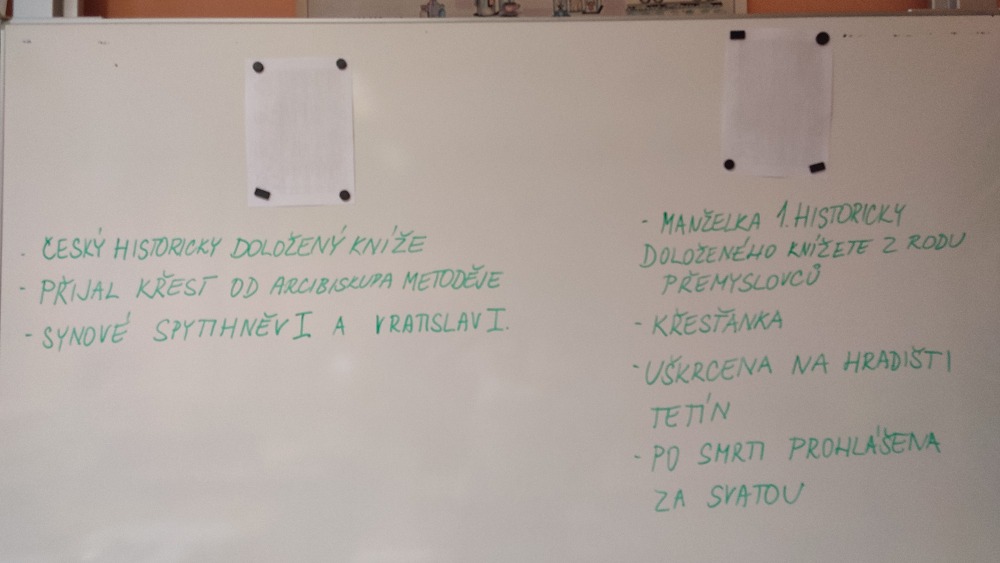 - ČESKÝ HISTORICKY DOLOŽENÝ KNÍŽE
- PŘIJAL KŘEST OD ARCIBISKUPA METODĚJE
- SYNOVÉ SPYTIHNĚV I A VRATISLAV I.
- MANŽELKA 1. HISTORICKY
DOLOŽENÉHO KNÍŽETE Z RODU
PŘEMYSLOVCŮ
- KŘESŤANKA
- UŠKRCENA NA HRADIŠTI
TETÍN
- PO SMRTI PROHLÁŠENA
ZA SVATOU